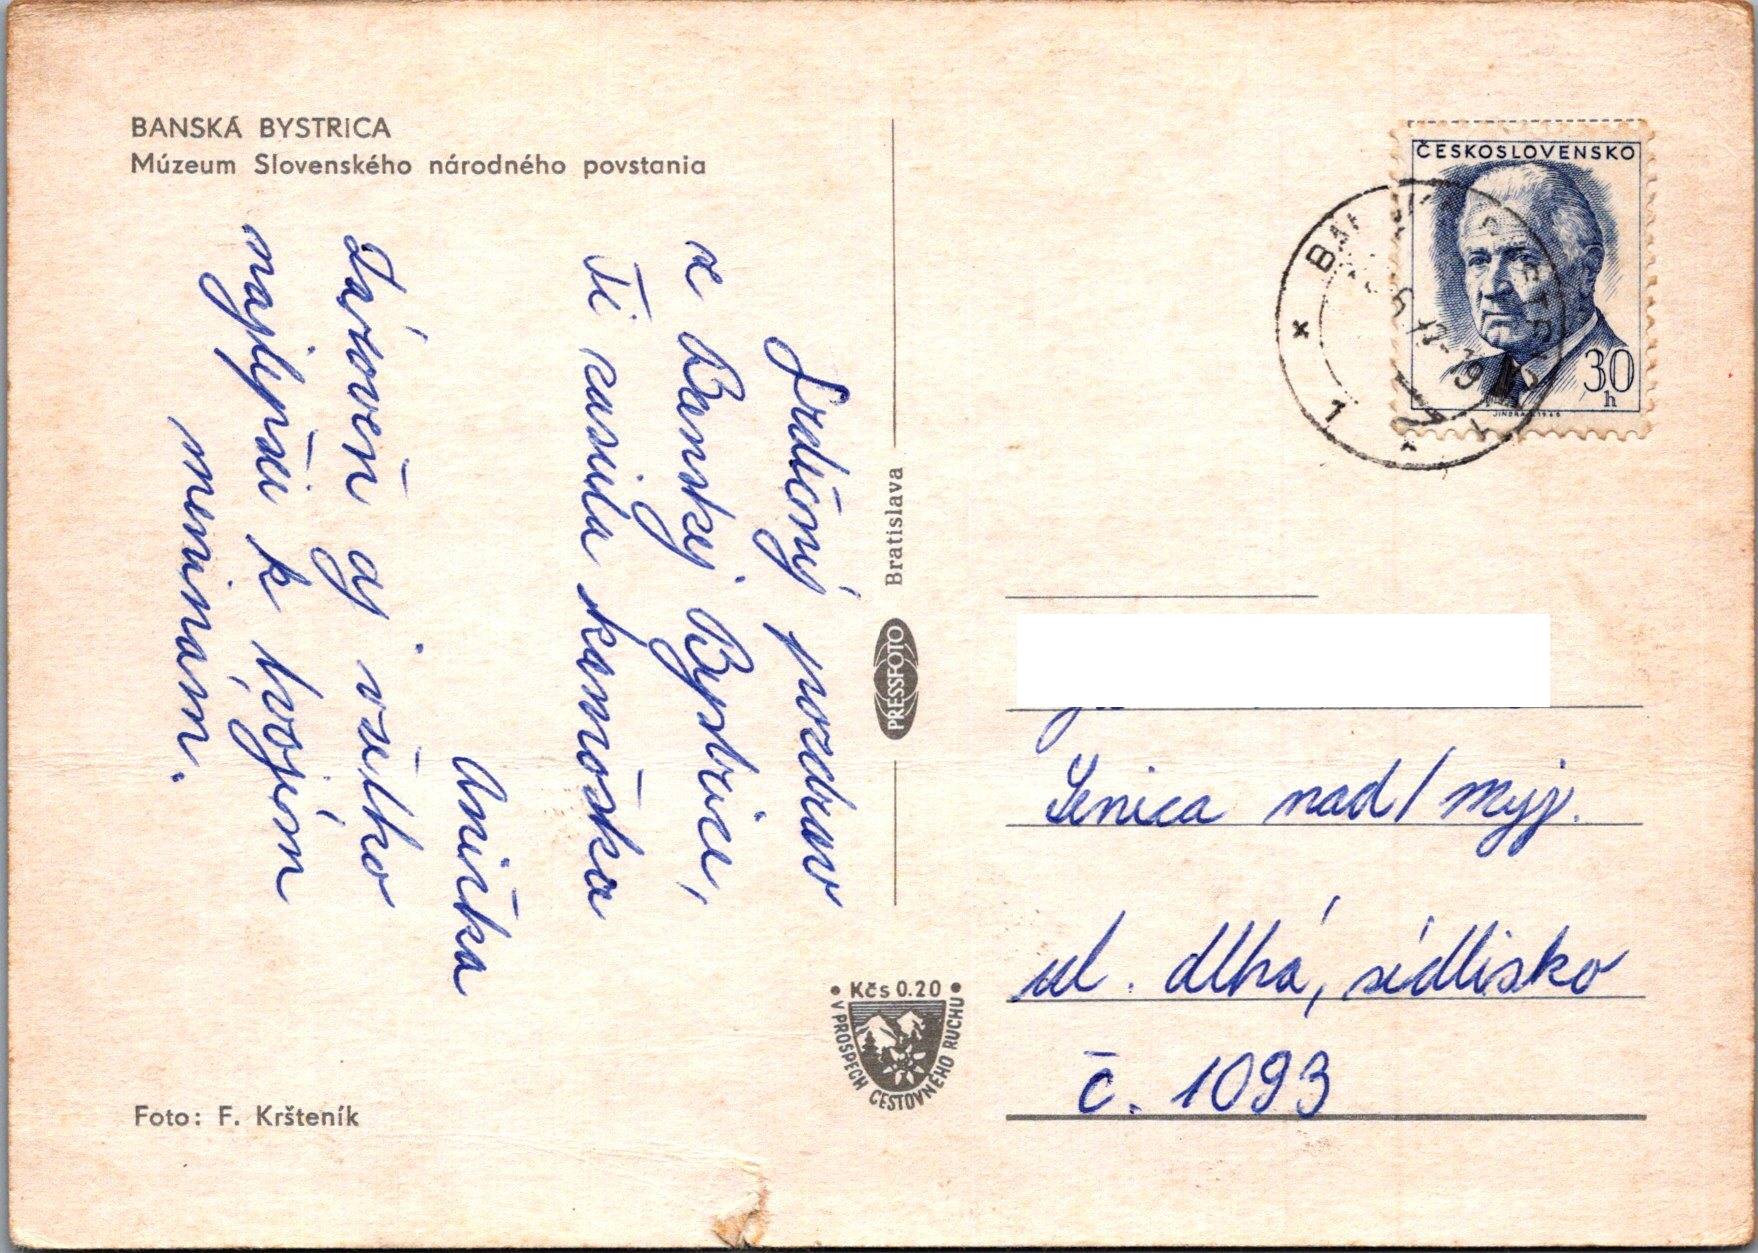 BANSKÁ BYSTRICA
Múzeum Slovenského národného povstania
Srdečný pozdrav
z Banskej Bystrice,
Ti zasiela kamoška
Anička
Zároveň aj všetko
najlepšie k tvojím
meninám.
Bratislava
PRESSFOTO
Kčs 0.20
V PROSPECH CESTOVNÉHO RUCHU
Foto: F. Kršteník
ČESKOSLOVENSKO
30
h
1
Senica nad/Myj.
ul. dlhá, sídlisko
č. 1093